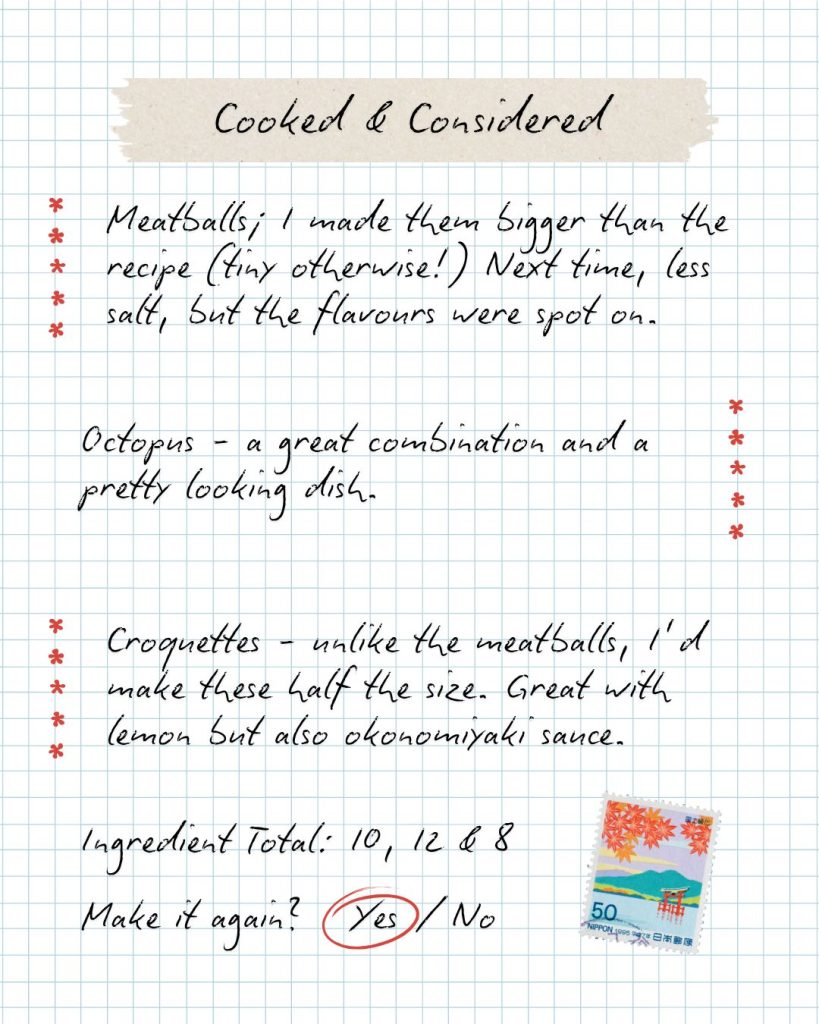 Cooked & Considered
Meatballs; I made them bigger than the
recipe (tiny otherwise!) Next time, less
salt, but the flavours were spot on.
Octopus - a great combination and a
pretty looking dish.
Croquettes - unlike the meatballs, I'd
make these half the size. Great with
lemon but also okonomiyaki sauce.
Ingredient Total: 10, 12 & 8
Make it again? Yes / No
50
NIPPON 1995
日本郵便